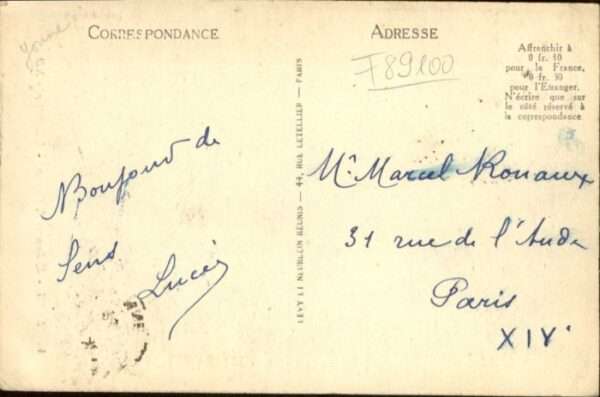 Yonne
CORRESPONDANCE
ADRESSE
F89100
Affranchir à
0 fr. 10
pour la France,
0 fr. 30
pour l'Etranger.
N'écrire que sur
le côté réservé à
la correspondance
LÉVY ET NEURDEIN RÉUNIS — 44, RUE LETELLIER — PARIS
Bonjour de
Sens
Lucien
Mr Marcel Ronaux
31 rue de l'Aude
Paris
XIVe